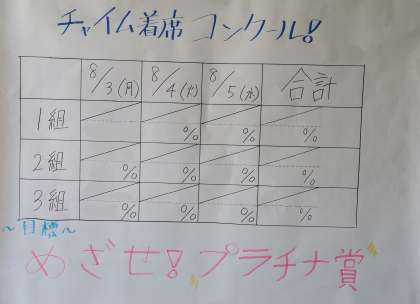 チャイム着席コンクール!
8/3(月) 8/4(火) 8/5(水) 合計
1組 % % %
2組 % % % %
3組 % % % %
~目標~
めざせ!プラチナ賞